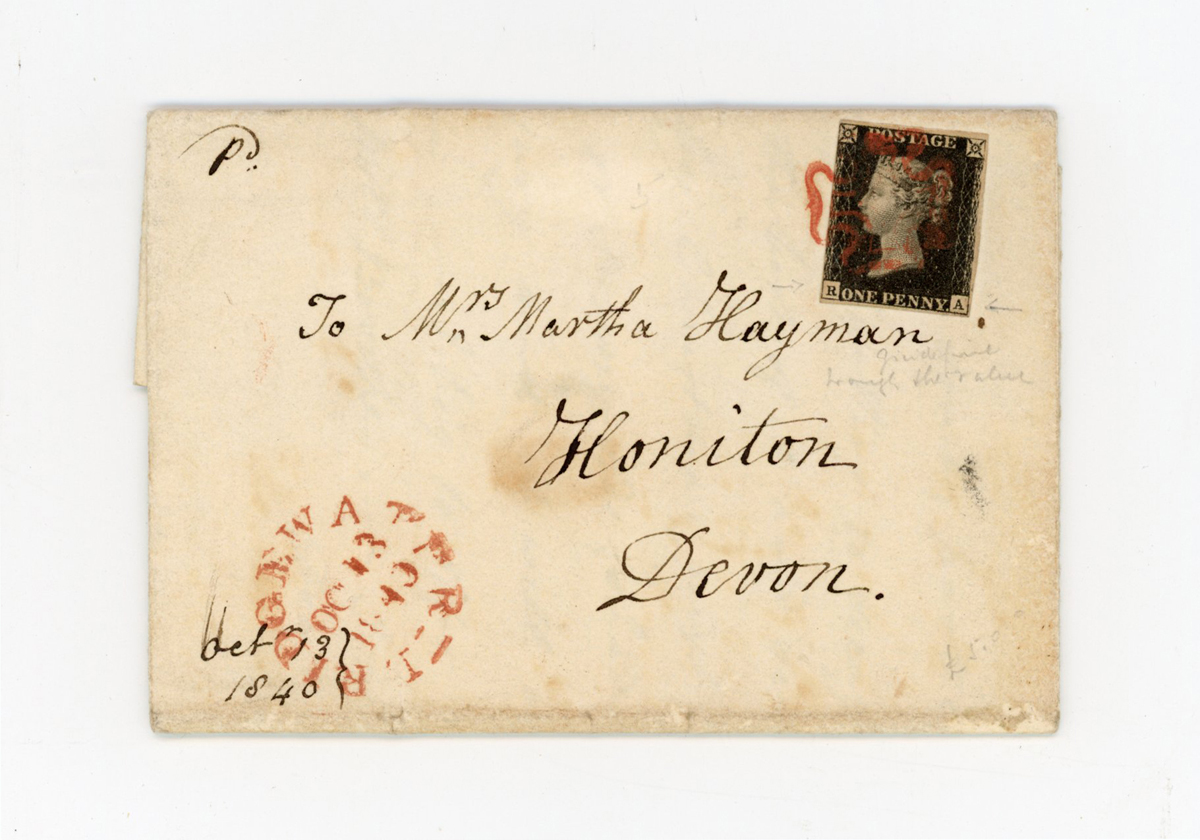 Pd.
POSTAGE
R ONE PENNY. A
To Mrs Martha Hayman
through the value
Honiton
Devon.
BRIDGEWATER
OC 13
1840
Octr 13
1840
£5.0